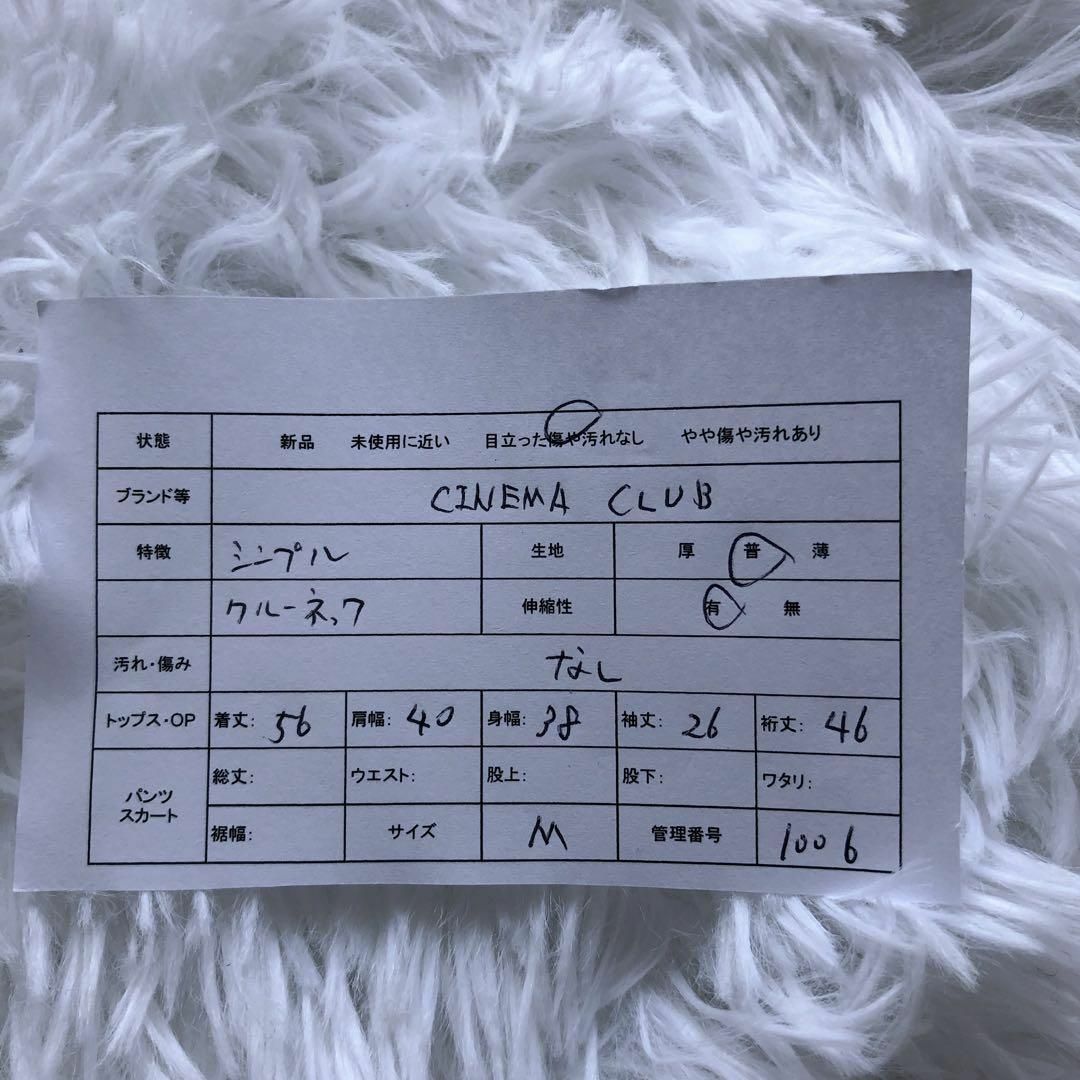 状態 新品 未使用に近い 目立った傷や汚れなし やや傷や汚れあり
ブランド等 CINEMA CLUB
特徴 シンプル 生地 厚 普 薄
クルーネック 伸縮性 有 無
汚れ・傷み なし
トップス・OP 着丈: 56 肩幅: 40 身幅: 38 袖丈: 26 裄丈: 46
パンツ スカート 総丈: ウエスト: 股上: 股下: ワタリ:
裾幅: サイズ M 管理番号 1006